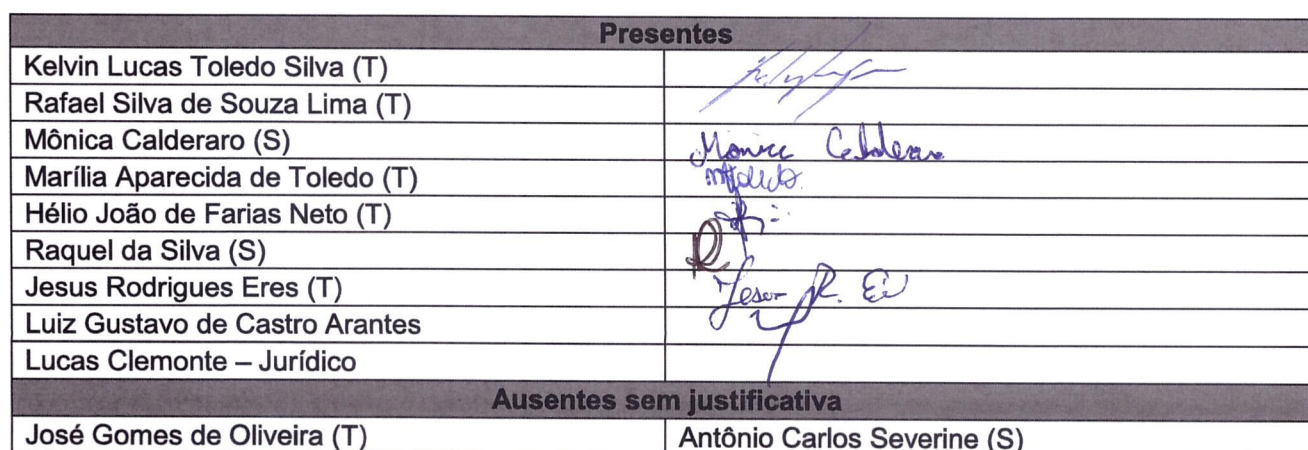 Presentes
Kelvin Lucas Toledo Silva (T)
Rafael Silva de Souza Lima (T)
Mônica Calderaro (S) Monica Calderaro
Marília Aparecida de Toledo (T)
Hélio João de Farias Neto (T)
Raquel da Silva (S)
Jesus Rodrigues Eres (T) Jesus R.
Luiz Gustavo de Castro Arantes
Lucas Clemonte – Jurídico
Ausentes sem justificativa
José Gomes de Oliveira (T) Antônio Carlos Severine (S)